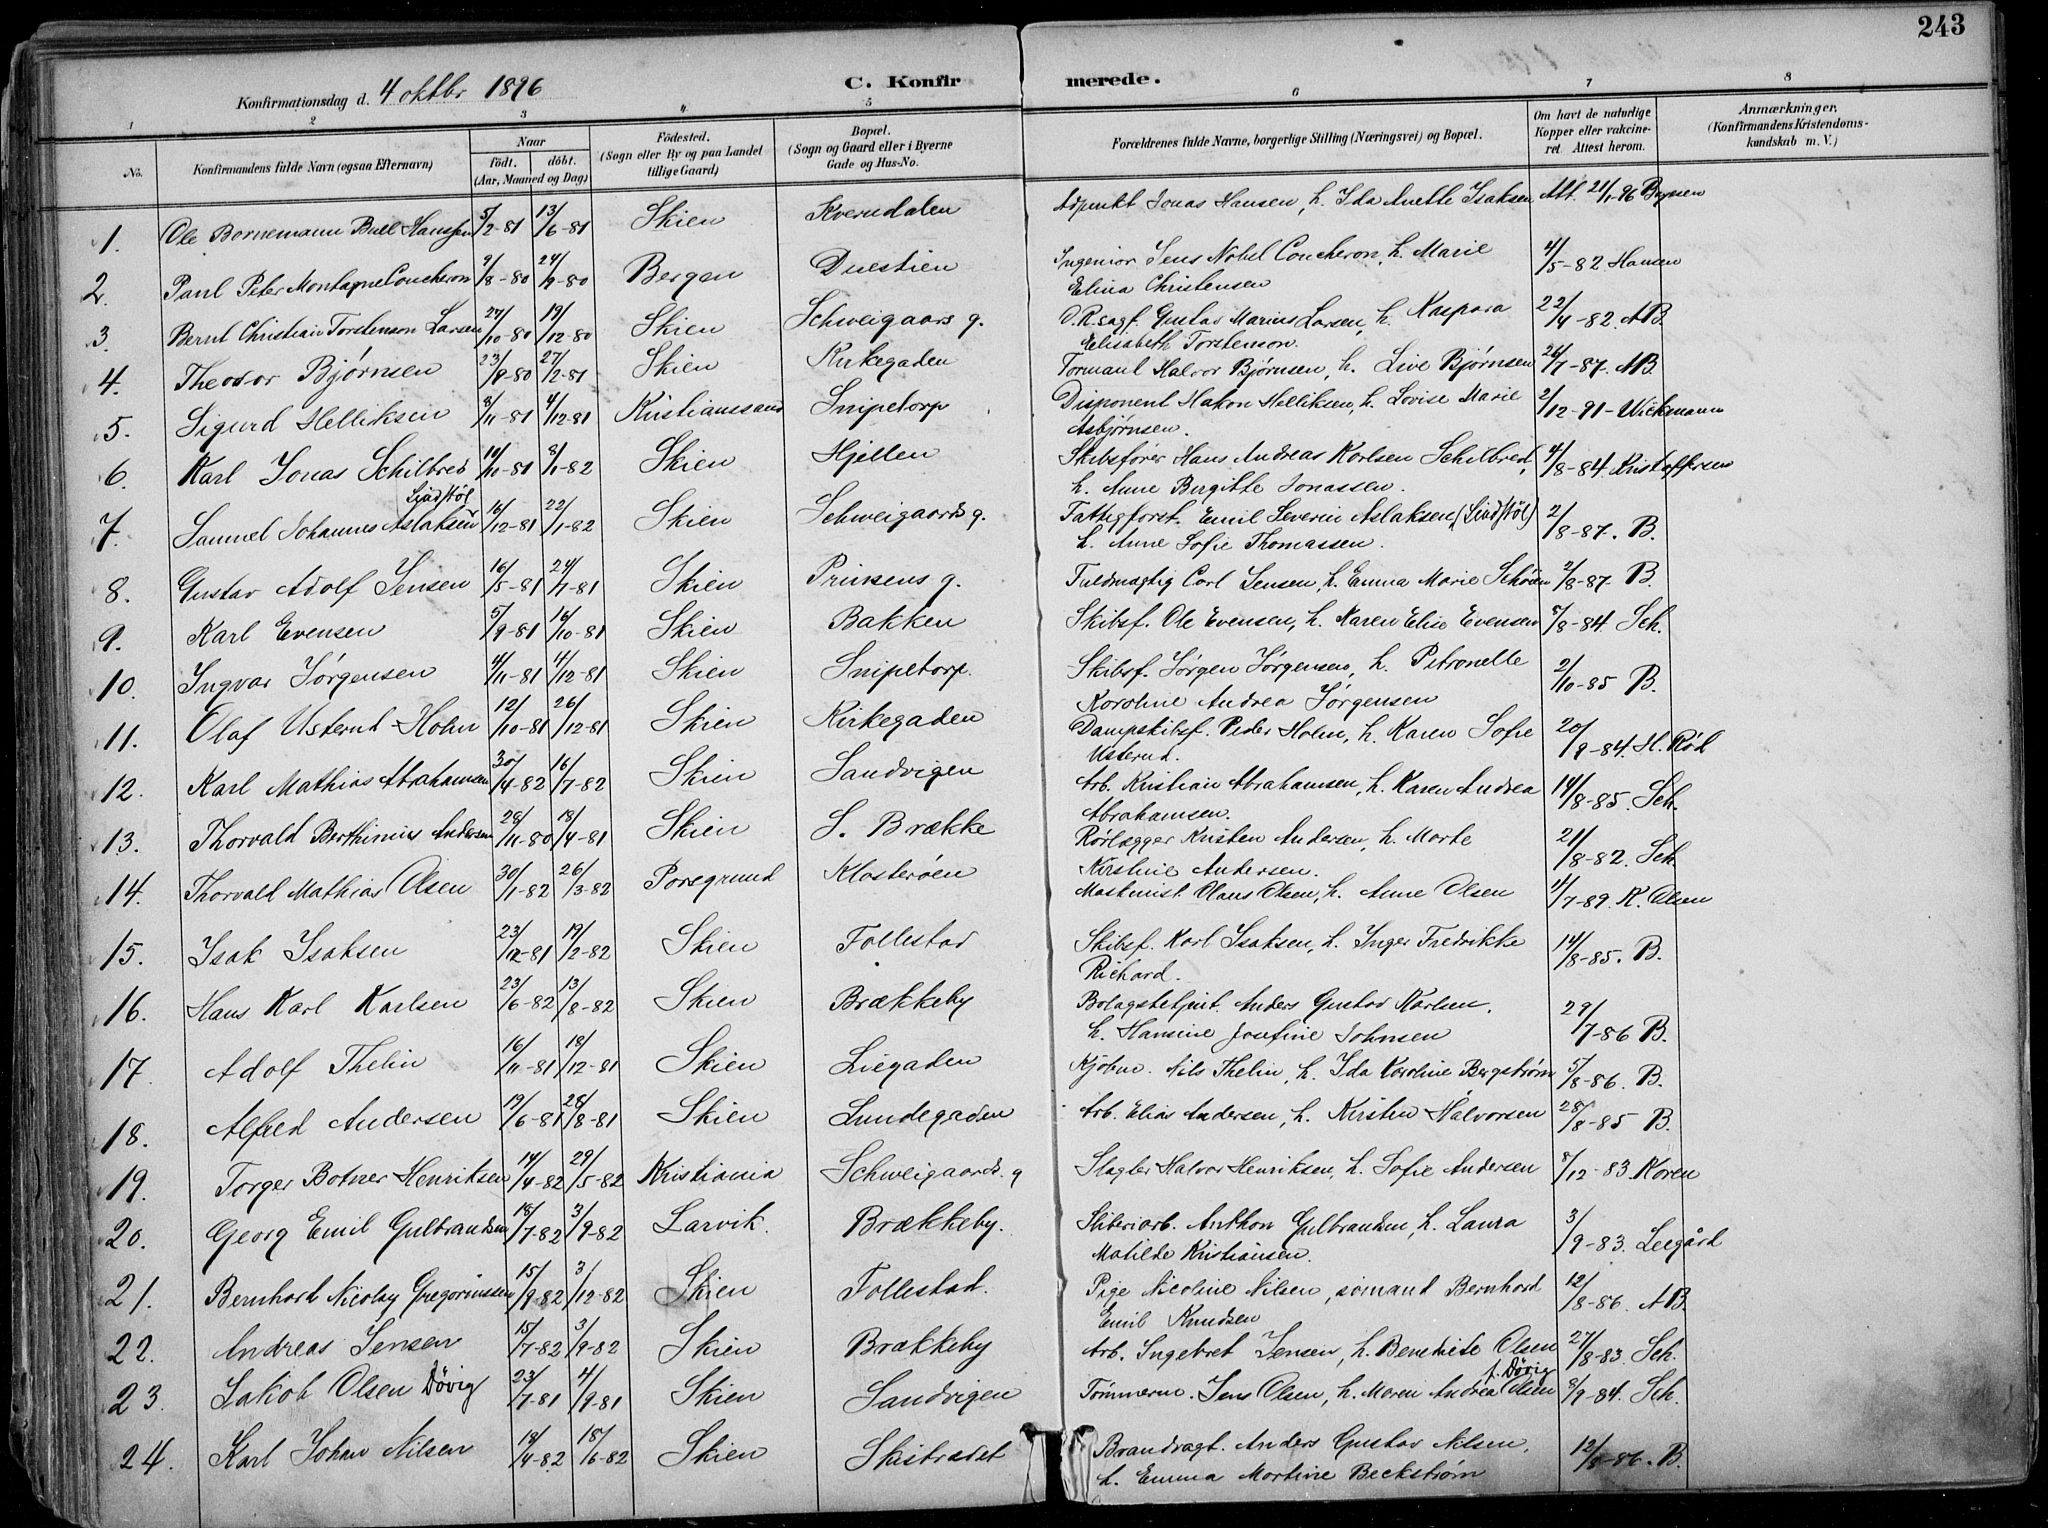 243
Konfirmationsdag d. 4 oktbr 1896 C. Konfirmerede.
1 2 3 4 5 6 7 8
No. Konfirmandens fulde Navn (ogsaa Efternavn) Naar født. døbt. (Aar, Maaned og Dag) Fødested. (Sogn eller By og paa Landet tillige Gaard) Bopæl. (Sogn og Gaard eller i Byerne Gade og Hus-No. Forældrenes fulde Navne, borgerlige Stilling (Næringsvei) og Bopæl. Om havt de naturlige Kopper eller vakcineret. Attest herom. Anmærkninger. (Konfirmandens Kristendomskundskab m. V.)
1. Ole Bornemann Bull Hanssen 5/2-81 13/6-81 Skien Kverndalen Adjunkt Jonas Hansen, h. Ida Anette Isaksen Att. 21/1-96
2. Paul Peter Montagne Coucheron 9/8-80 24/9-80 Bergen Duestien Ingeniør Jens Nobel Coucheron, h. Marie 4/5-82 Hansen
Elina Christensen
3. Bernt Christian Torstenson Larsen 27/10-80 19/12-80 Skien Schweigaards g. O.R.sagf. Gustav Marius Larsen, h. Kaspara 22/4-82. AB.
Elisabeth Torstenson.
4. Theodor Bjørnsen 23/8-80 27/2-81 Skien Kirkegaden Formand Halvor Bjørnsen, h. Live Bjørnsen 26/7-87. AB.
5. Sigurd Helliksen 8/11-81 4/12-81 Kristianssand Snipetorp Disponent Hakon Helliksen, h. Lovise Marie 2/12-91- Wickmann
Asbjørnsen.
6. Karl Jonas Schilbred 10/10-81 8/1-82 Skien Hjellen Skibsfører Hans Andreas Karlsen Schilbred, 4/8-84 Kristoffersen
h. Anne Bergitte Jonassen.
7. Samuel Johannes Aslaksen Lindstøl 16/12-81 22/1-82 Skien Schweigaards g. Fattigforst. Emil Severin Aslaksen (Lindstøl) 2/8-87. B.
h. Anne Sofie Thomassen.
8. Gustav Adolf Jensen 16/5-81 24/7-81 Skien Prinsens g. Fuldmægtig Carl Jensen, h. Emma Marie Schøien 2/8-87. B.
9. Karl Evensen 5/9-81 16/10-81 Skien Bakken Skibsf. Ole Evensen, h. Karen Elise Evensen 5/8-84. Sch.
10. Ingvar Jørgensen 4/11-81 4/12-81 Skien Snipetorp. Skibsf. Jørgen Jørgensen, h. Petronelle 2/10-85 B.
Karoline Andrea Jørgensen
11. Olaf Usterud Holm 12/10-81 26/12-81 Skien Kirkegaden Dampskibsf. Peder Holm, h. Karen Sofie 20/9-84. H. Rød
Usterud.
12. Karl Mathias Abrahamsen 30/4-82 16/7-82 Skien Sandvigen Arb. Kristian Abrahamsen, h. Karen Andrea 14/8-85. Sch.
Abrahamsen.
13. Thorvald Berthinius Andersen 28/11-80 18/4-81 Skien S. Brække Rørlægger Kristen Andersen, h. Marte 21/8-82. Sch.
Kirstine Andersen.
14. Thorvald Mathias Olsen 30/1-82 26/3-82 Porsgrund Klosterøen Maskinist Olaus Olsen, h. Anne Olsen 4/7-89. K. Olsen
15. Isak Isaksen 23/12-81 19/2-82 Skien Follestad Skibsf. Karl Isaksen, h. Inger Fredrikke 14/8-85. B.
Richard.
16. Hans Karl Karlsen 23/6-82 13/8-82 Skien Brækkeby Bolagsbetjent. Anders Gustav Karlsen, 29/7-86 B.
h. Hansine Josefine Johnsen
17. Adolf Thelin 16/11-81 18/12-81 Skien Liegaden Kjøbm. Nils Thelin, h. Ida Karoline Bergstrøm 5/8-86. B.
18. Alfred Andersen 19/6-81 28/8-81 Skien Lundegaden Arb. Elias Andersen, h. Kirsten Halvorsen 28/8-85 B.
19. Torger Botner Henriksen 14/4-82 29/5-82 Kristiania Schweigaards. g Slagter Halvor Henriksen, h. Sofie Andersen 8/12-83. Koren
20. Georg Emil Gulbrandsen 18/7-82 3/9-82 Larvik. Brækkeby. Sliberiarb. Anthon Gulbrandsen, h. Laura 3/9-83. Leegård
Matilde Kristiansen.
21. Bernhard Nicolay Gregoriussen 15/9-82 3/12-82 Skien Follestad. Pige Nicoline Nilsen, sømand Bernhard 12/8-86. AB.
Emil Knudsen
22. Andreas Jensen 15/7-82 3/9-82 Skien Brækkeby Arb. Ingebret Jensen, h. Benedicte Olsen 27/8-83. Sch.
23. Jakob Olsen Døvig 23/7-81 4/9-81 Skien Sandvigen Tømmerm. Jens Olsen, h. Maren Andrea Olsen f. Døvig 8/9-84. Sch.
24. Karl Johan Nilsen 18/4-82 18/6-82 Skien Skistredet Brandvagt. Anders Gustav Nilsen, 12/8-86. B.
h. Emma Martine Beckstrøm